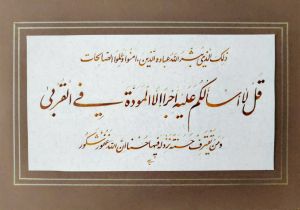 ذلك الذی یبشر الله عباده الذین امنوا و عملوا الصالحات
قل لا اسألکم علیه اجرا الا المودة فی القربی
و من یقترف حسنة نزد له فیها حسنا ان الله غفور شکور